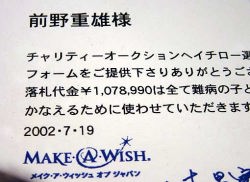 前野重雄様
チャリティーオークションへイチロー選
フォームをご提供下さりありがとうご
落札代金¥1,078,990は全て難病の子と
かなえるために使わせていただきます
2002・7・19
MAKE・A・WISH®
メイク・ア・ウィッシュ オブ ジャパン